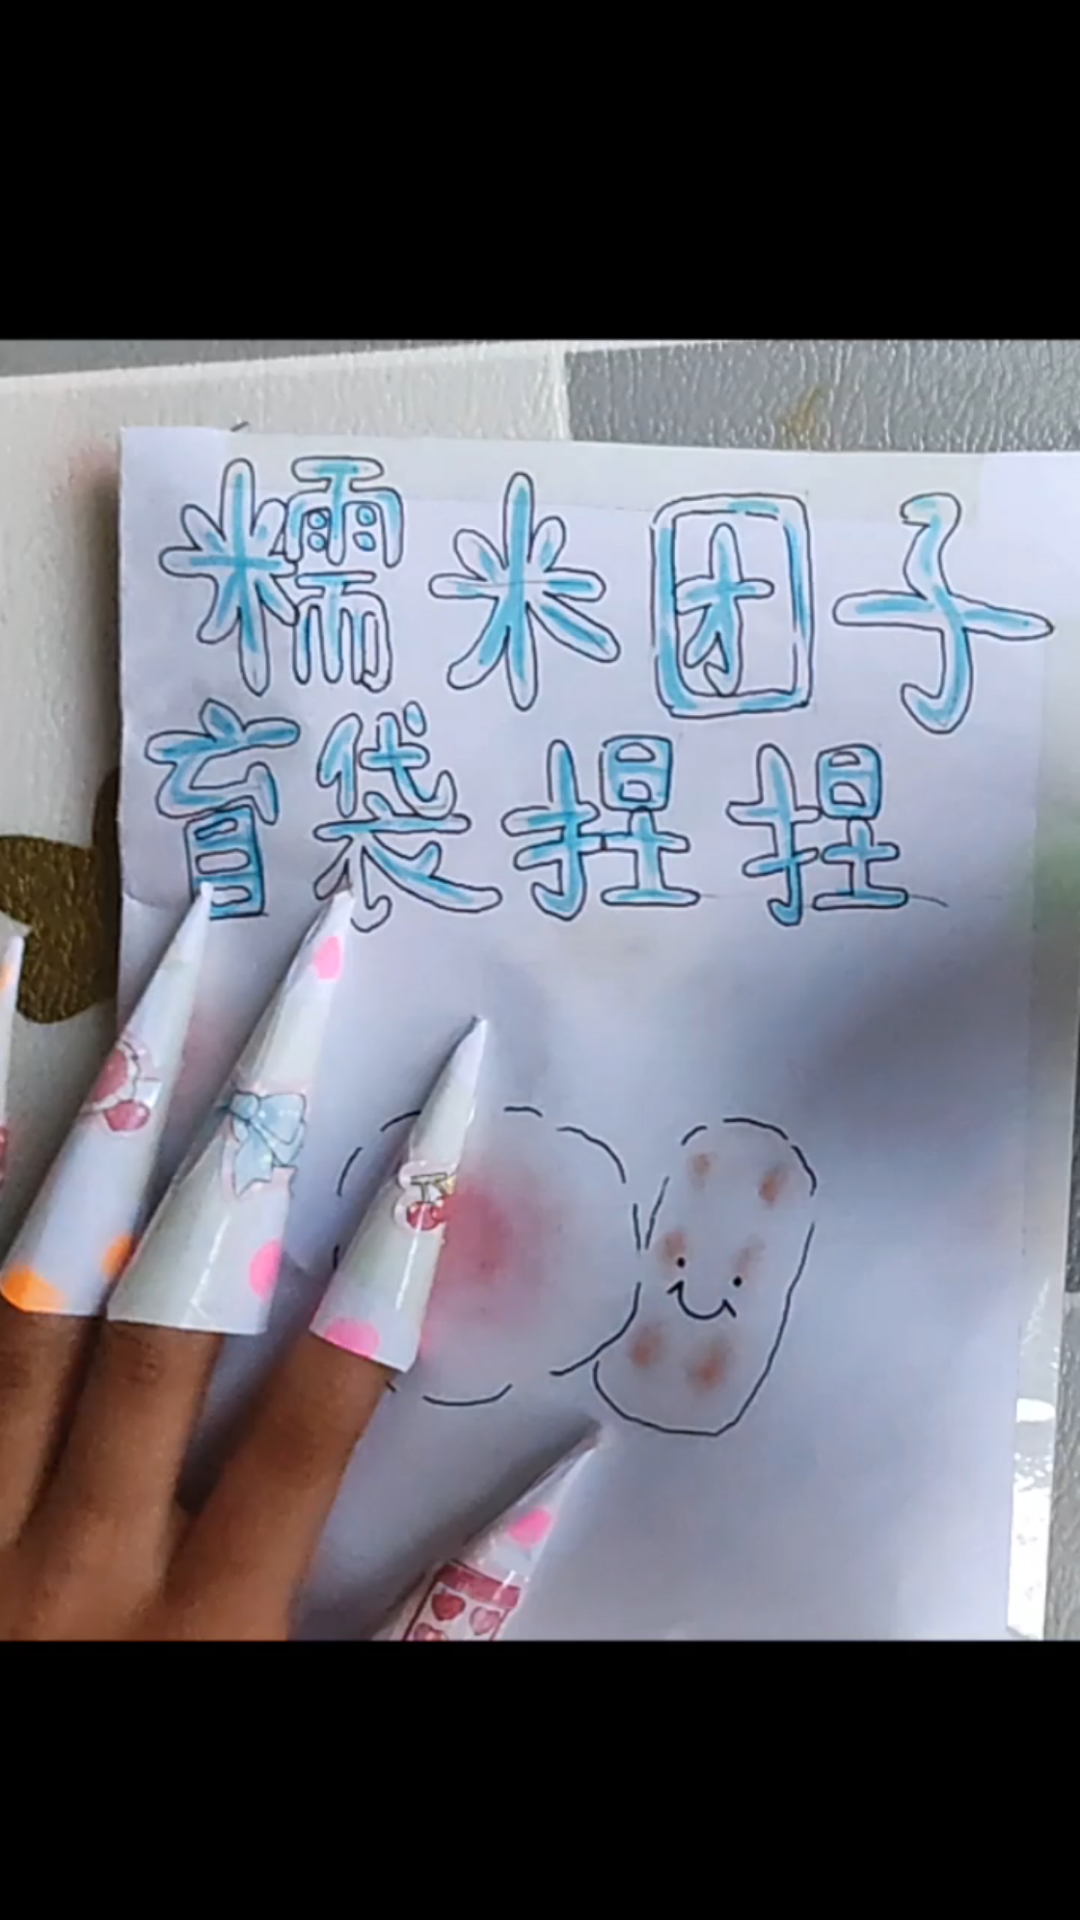 糯米团子
盲袋捏捏